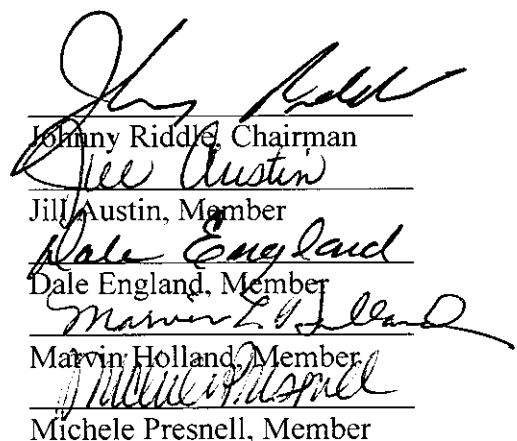 Johnny Riddle
Johnny Riddle, Chairman
Jill Austin
Jill Austin, Member
Dale England
Dale England, Member
Marvin L Holland
Marvin Holland, Member
Michele Presnell
Michele Presnell, Member